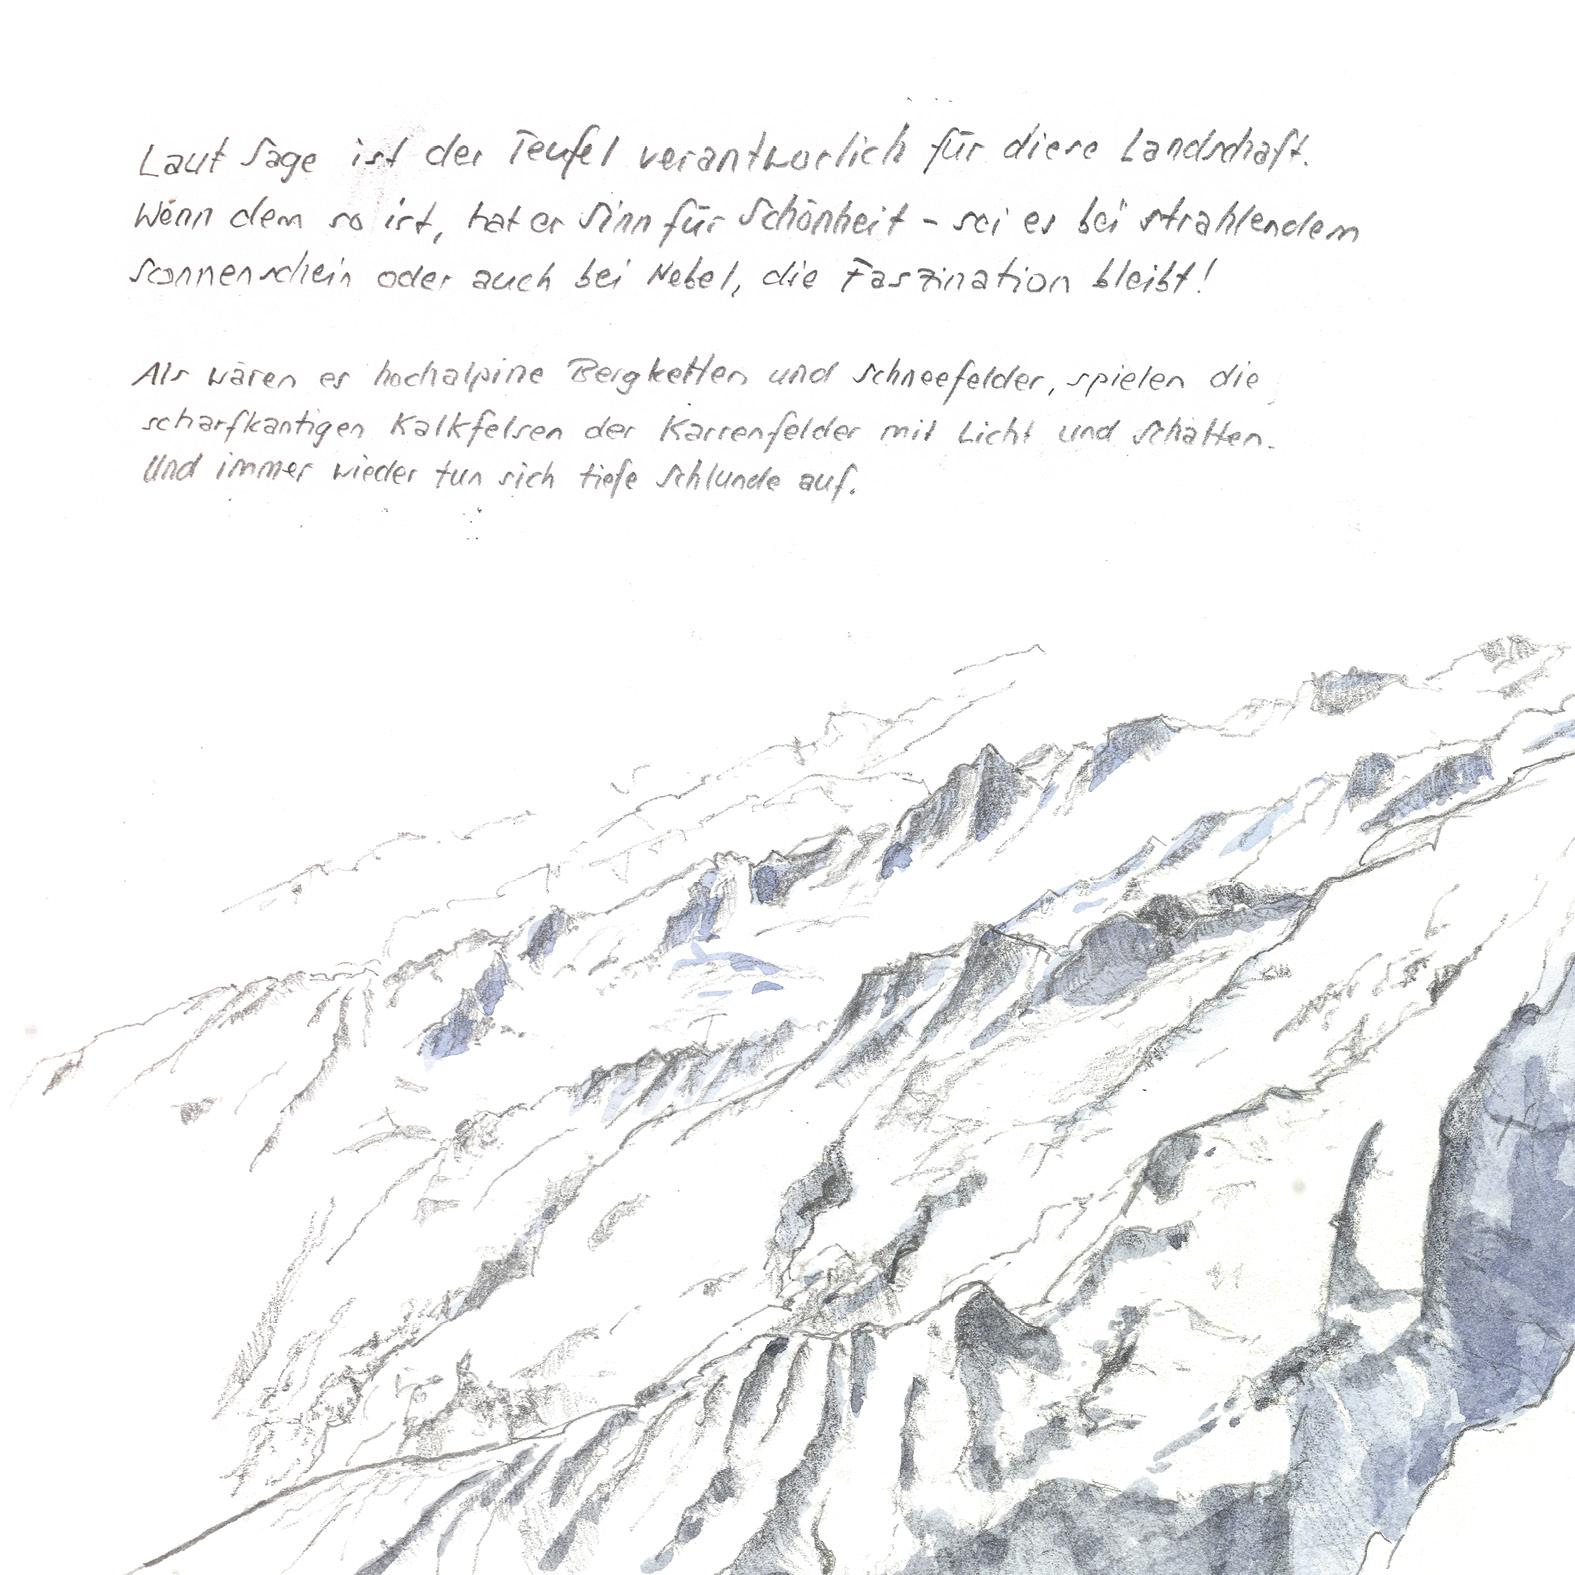 Laut Sage ist der Teufel verantworlich für diese Landschaft.
Wenn dem so ist, hat er Sinn für Schönheit - sei es bei strahlendem
Sonnenschein oder auch bei Nebel, die Faszination bleibt!
Als wären es hochalpine Bergketten und Schneefelder, spielen die
scharfkantigen Kalkfelsen der Karrenfelder mit Licht und Schatten.
Und immer wieder tun sich tiefe Schlunde auf.